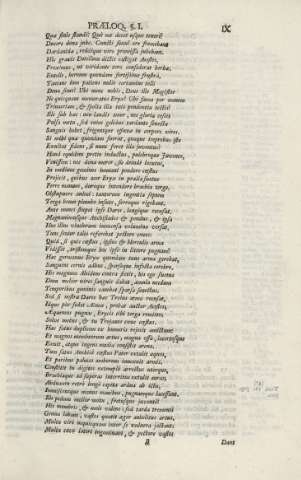 PRÆLOQ. §. I. IX
Quæ finis standi? Quò me decet usque teneri?
Ducere dona jube. Cuncti simul ore fremebant
Dardanidæ, reddique viro promissa jubebant.
Hic gravis Entellum dictis castigat Acestes,
Proximus, ut viridante toro consederat herbæ:
Entelle, heroum quondam fortissime frustrà,
Tantane tam patiens nullo certamine tolli
Dona sines? Ubi nunc nobis, Deus ille Magister
Ne quicquam memoratus Eryx? Ubi fama per omnem
Trinacriam, & spolia illa tuis pendentia tectis?
Ille sub hæc: non laudis amor, nec gloria cessit
Pulsa metu, sed enim gelidus tardante senecta
Sanguis hebet, frigentque effœtæ in corpore vires.
Si mihi quæ quondam fuerat, quaque improbus iste
Exultat fidens, si nunc foret illa juventus!
Haud equidem pretio inductus, pulchroque Juvenco,
Venissem: nec dona moror, sic deinde locutus,
In medium geminos immani pondere cæstus
Projecit, quibus acer Eryx in prælia suetus
Ferre manum, duroque intendere brachia tergo.
Obstupuere animi: tantorum ingentia septem
Terga boum plumbo insuto, ferroque rigebant.
Ante omnes stupet ipse Dares, longèque recusat:
Magnanimusque Anchisiades & pondus, & ipsa
Huc illuc vinclorum immensa volumina versat.
Tunc senior tales referebat pectore voces:
Quid, si quis cæstus, ipsius & Herculis arma
Vidisset, tristemque hoc ipso in littore pugnam?
Hæc germanus Eryx quondam tuus arma gerebat,
Sanguine cernis adhuc, sparsoque infecta cerebro,
His magnum Alciden contra stetit, his ego suetus
Dum melior vires sanguis dabat, æmula necdum
Temporibus geminis canebat sparsa senectus.
Sed si nostra Dares hæc Troius arma recusat,
Idque pio sedet Æneæ, probat auctor Acestes,
Æquemus pugnas, Erycis tibi terga remitto,
Solve metus, & tu Trojanos exue cæstus.
Hæc fatus duplicem ex humeris rejecit amictum:
Et magnos membrorum artus, magna ossa, lacertosque
Exuit, atque ingens media consistit arena.
Tum satus Anchisa cæstus Pater extulit æquos,
Et paribus palmas amborum innexuit armis.
Constitit in digitos extemplò arrectus uterque,
Brachiaque ad superas interritus extulit auras.
Abduxere retrò longè capita ardua ab ictu,
Immiscentque manus manibus, pugnamque lacessunt.
Ille pedum melior motu, fretusque juventa:
Hic membris, & mole valens sed tarda trementi
Genua labant, vastos quatit æger anhelitus artus.
Multa viri nequicquam inter se vulnera jactant:
Multa cavo lateri ingeminant, & pectore vastos
a Dant